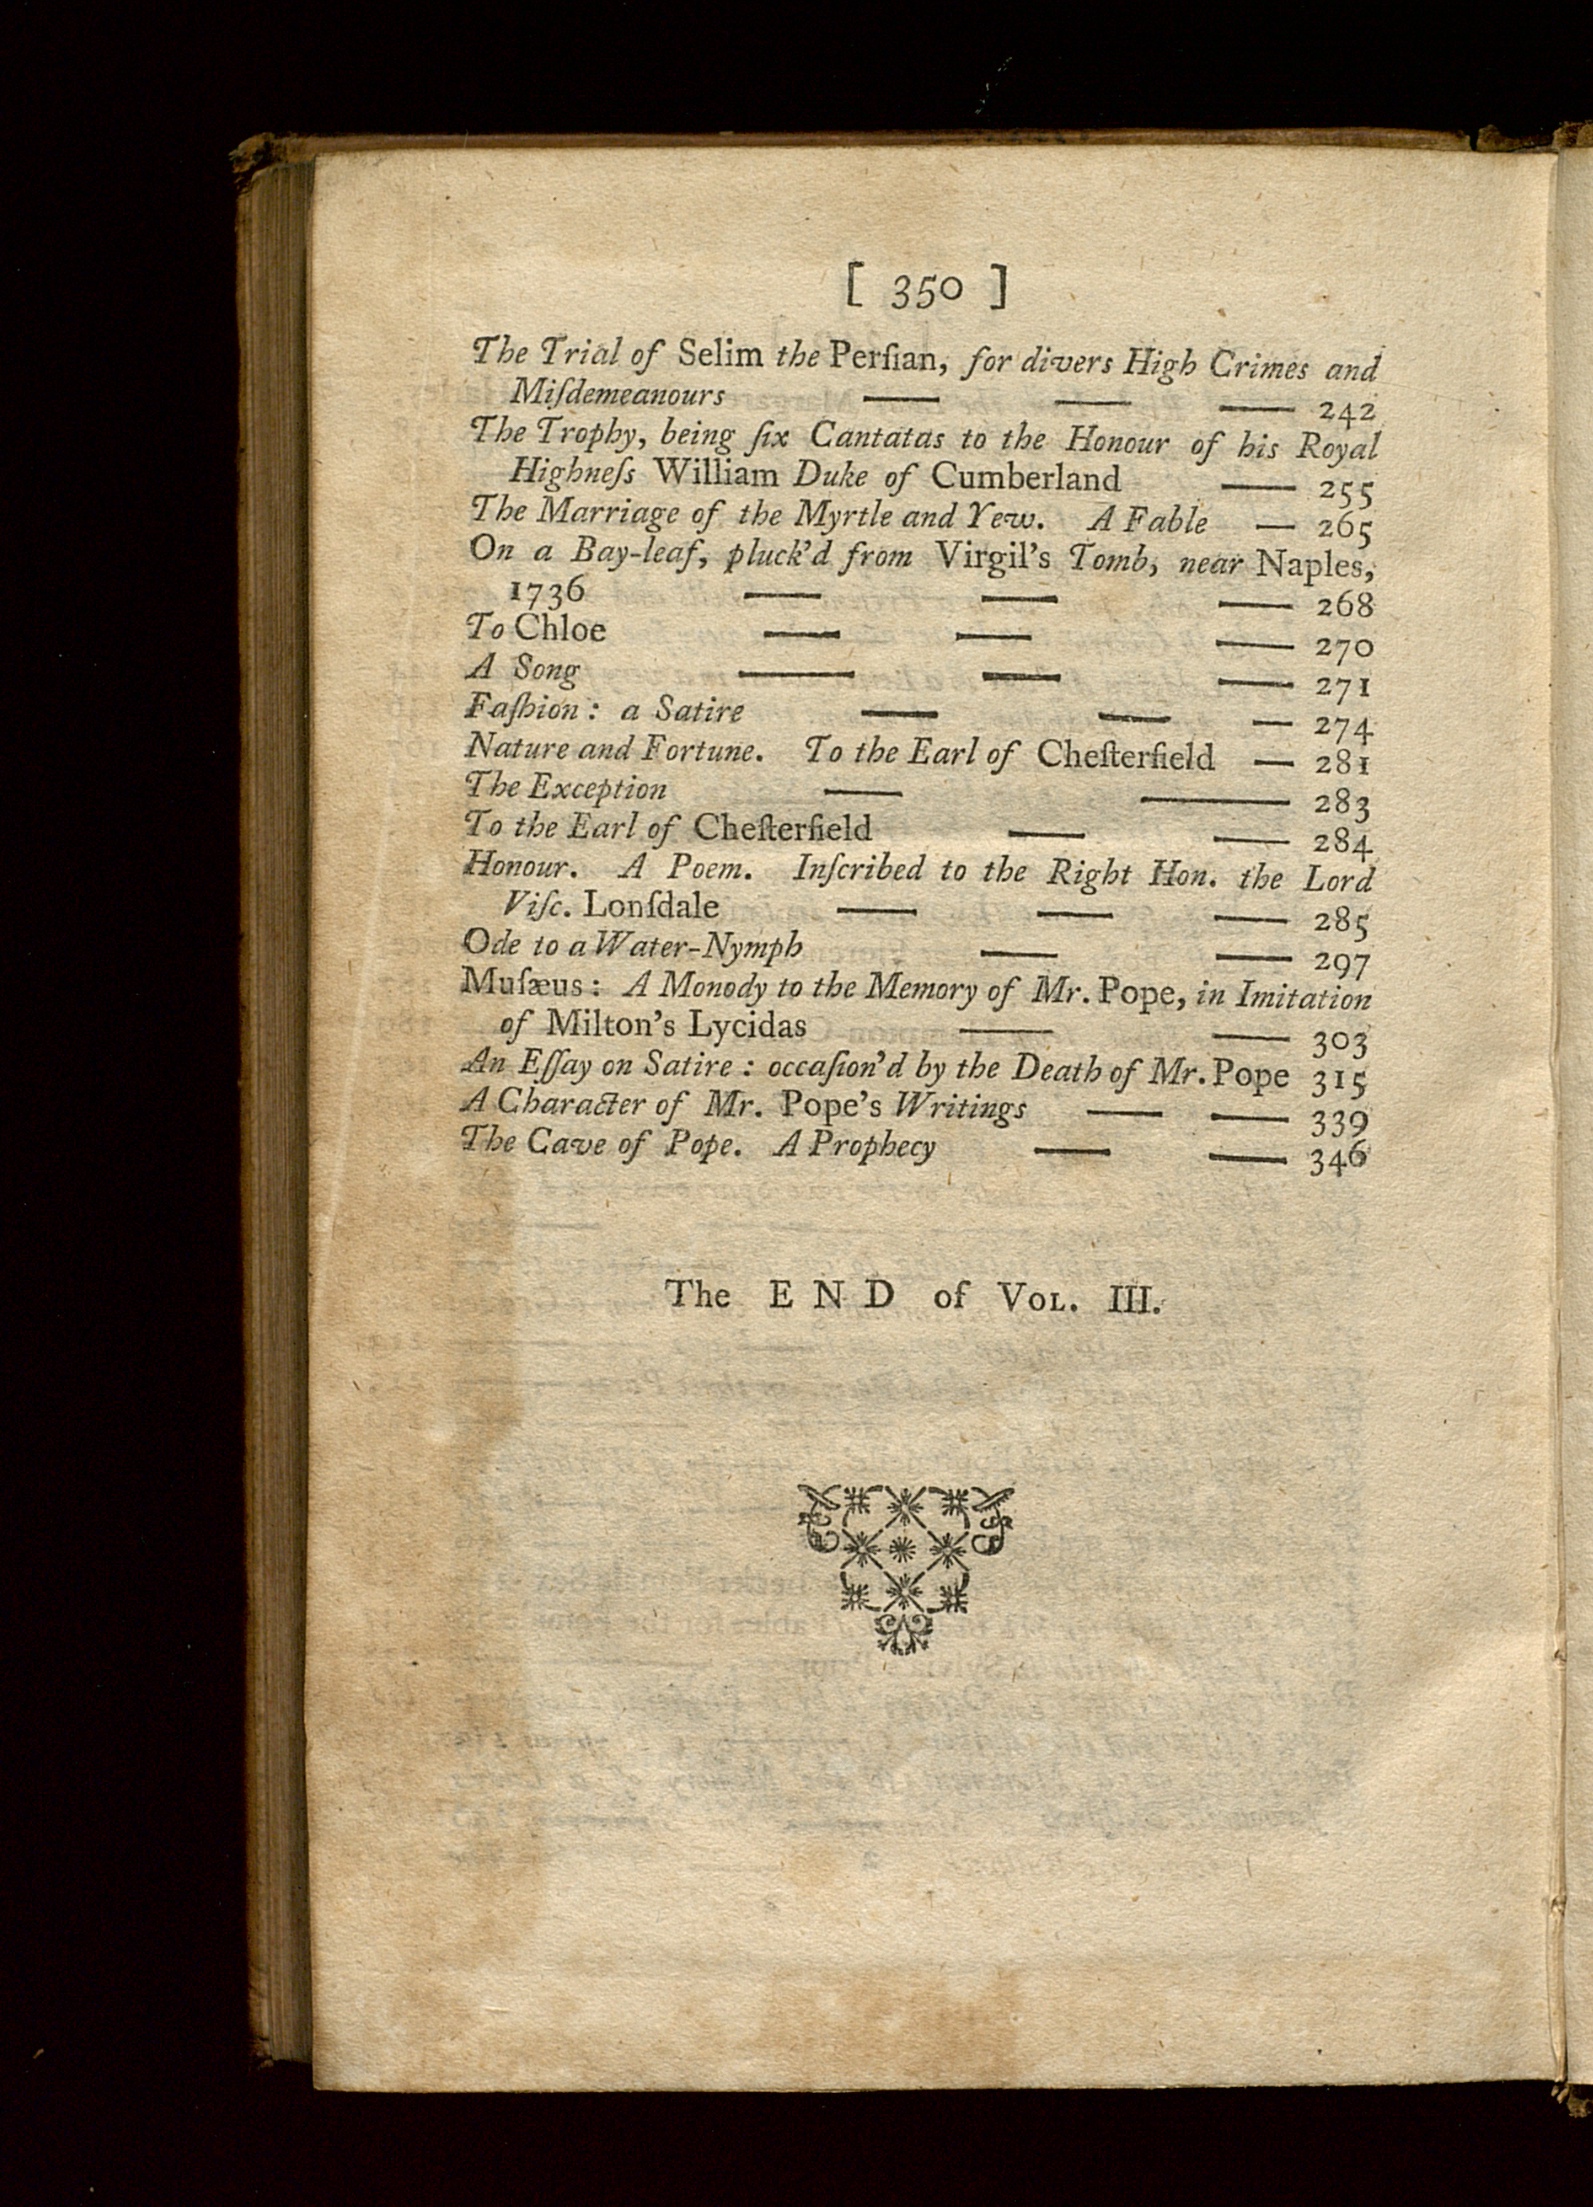 [ 350 ]
The Trial of Selim the Perſian, for divers High Crimes and
Miſdemeanours — — — 242
The Trophy, being ſix Cantatas to the Honour of his Royal
Highneſs William Duke of Cumberland — 255
The Marriage of the Myrtle and Yew. A Fable — 265
On a Bay-leaf, pluck'd from Virgil's Tomb, near Naples,
1736 — — — 268
To Chloe — — — 270
A Song — — — 271
Faſhion: a Satire — — — 274
Nature and Fortune. To the Earl of Cheſterfield — 281
The Exception — — 283
To the Earl of Cheſterfield — — 284
Honour. A Poem. Inſcribed to the Right Hon. the Lord
Viſc. Lonſdale — — — 285
Ode to a Water-Nymph — — 297
Muſæus: A Monody to the Memory of Mr. Pope, in Imitation
of Milton's Lycidas — — 303
An Eſſay on Satire: occaſion'd by the Death of Mr. Pope 315
A Character of Mr. Pope's Writings — — 339
The Cave of Pope. A Prophecy — — 346
The END of VOL. III.